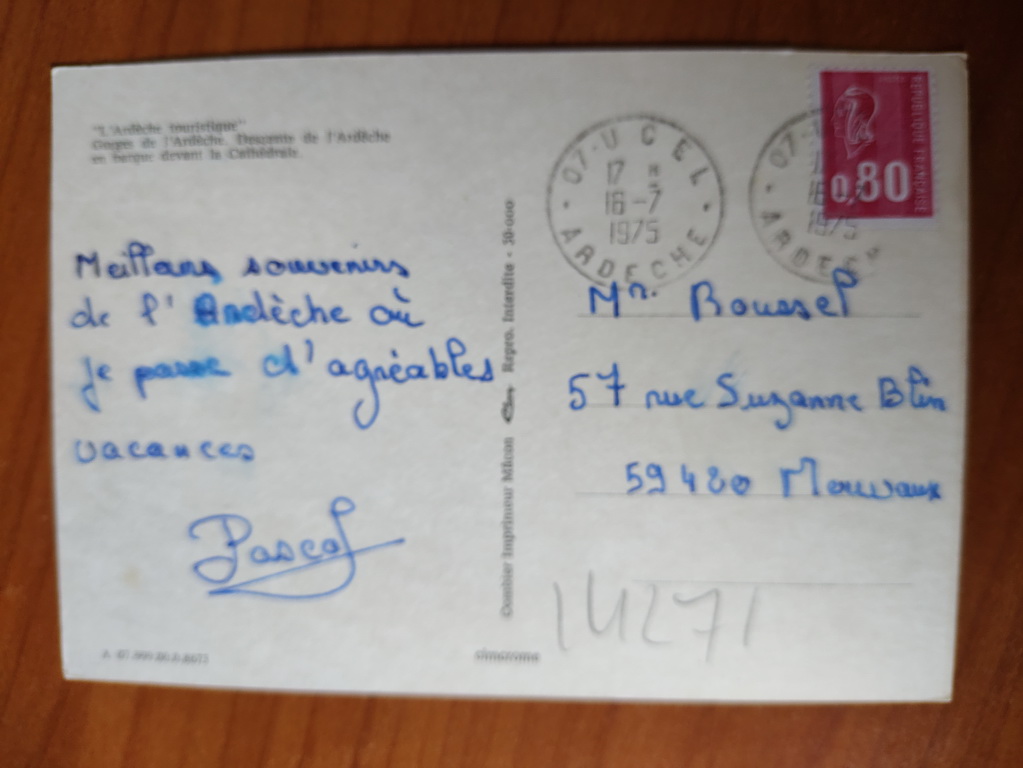 "L'Ardèche touristique"
Gorges de l'Ardèche. Descente de l'Ardèche
en barque devant la Cathédrale.
Meillans souvenirs
de l'Ardèche où
je passe d'agréables
vacances
Pascal
Combier Imprimeur Mâcon
Repro. Interdite - 30-000
cimarome
07-UCEL
17 H
16-7
1975
ARDECHE
07-
16-7
1975
ARDE
REPUBLIQUE FRANÇAISE
0,80
Mr. Roussel
57 rue Suzanne Blin
59420 Mouvaux
14271